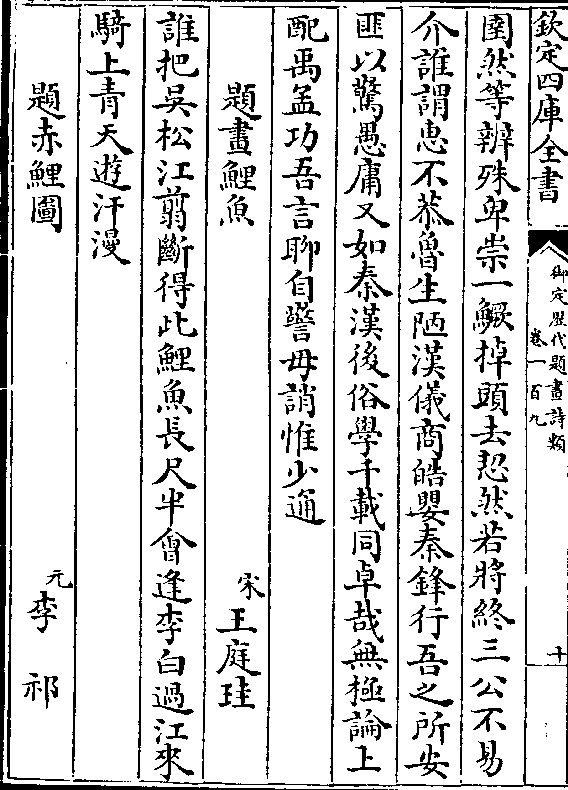 欽定四庫全書
御定歷代題畫詩類
卷一百九
十
圉然等辨殊卑崇一鱖掉頭去恝然若將終三公不易
介誰謂惠不恭魯生陋漢儀商皓嬰秦鋒行吾之所安
匪以驚愚庸又如秦漢後俗學千載同卓哉無極論上
配禹孟功吾言聊自警毋誚惟少通
題畫鯉魚
宋 王庭珪
誰把吳松江翦斷得此鯉魚長尺半㑹逢李白過江來
騎上青天遊汗漫
題赤鯉圖
元 李祁